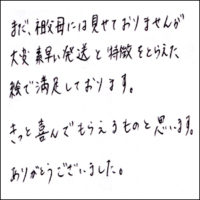 まだ、祖父母には見せておりませんが
大変 素早い発送と特徴をとらえた
絵で満足しております。
きっと喜んでもらえるものと思います。
ありがとうございました。